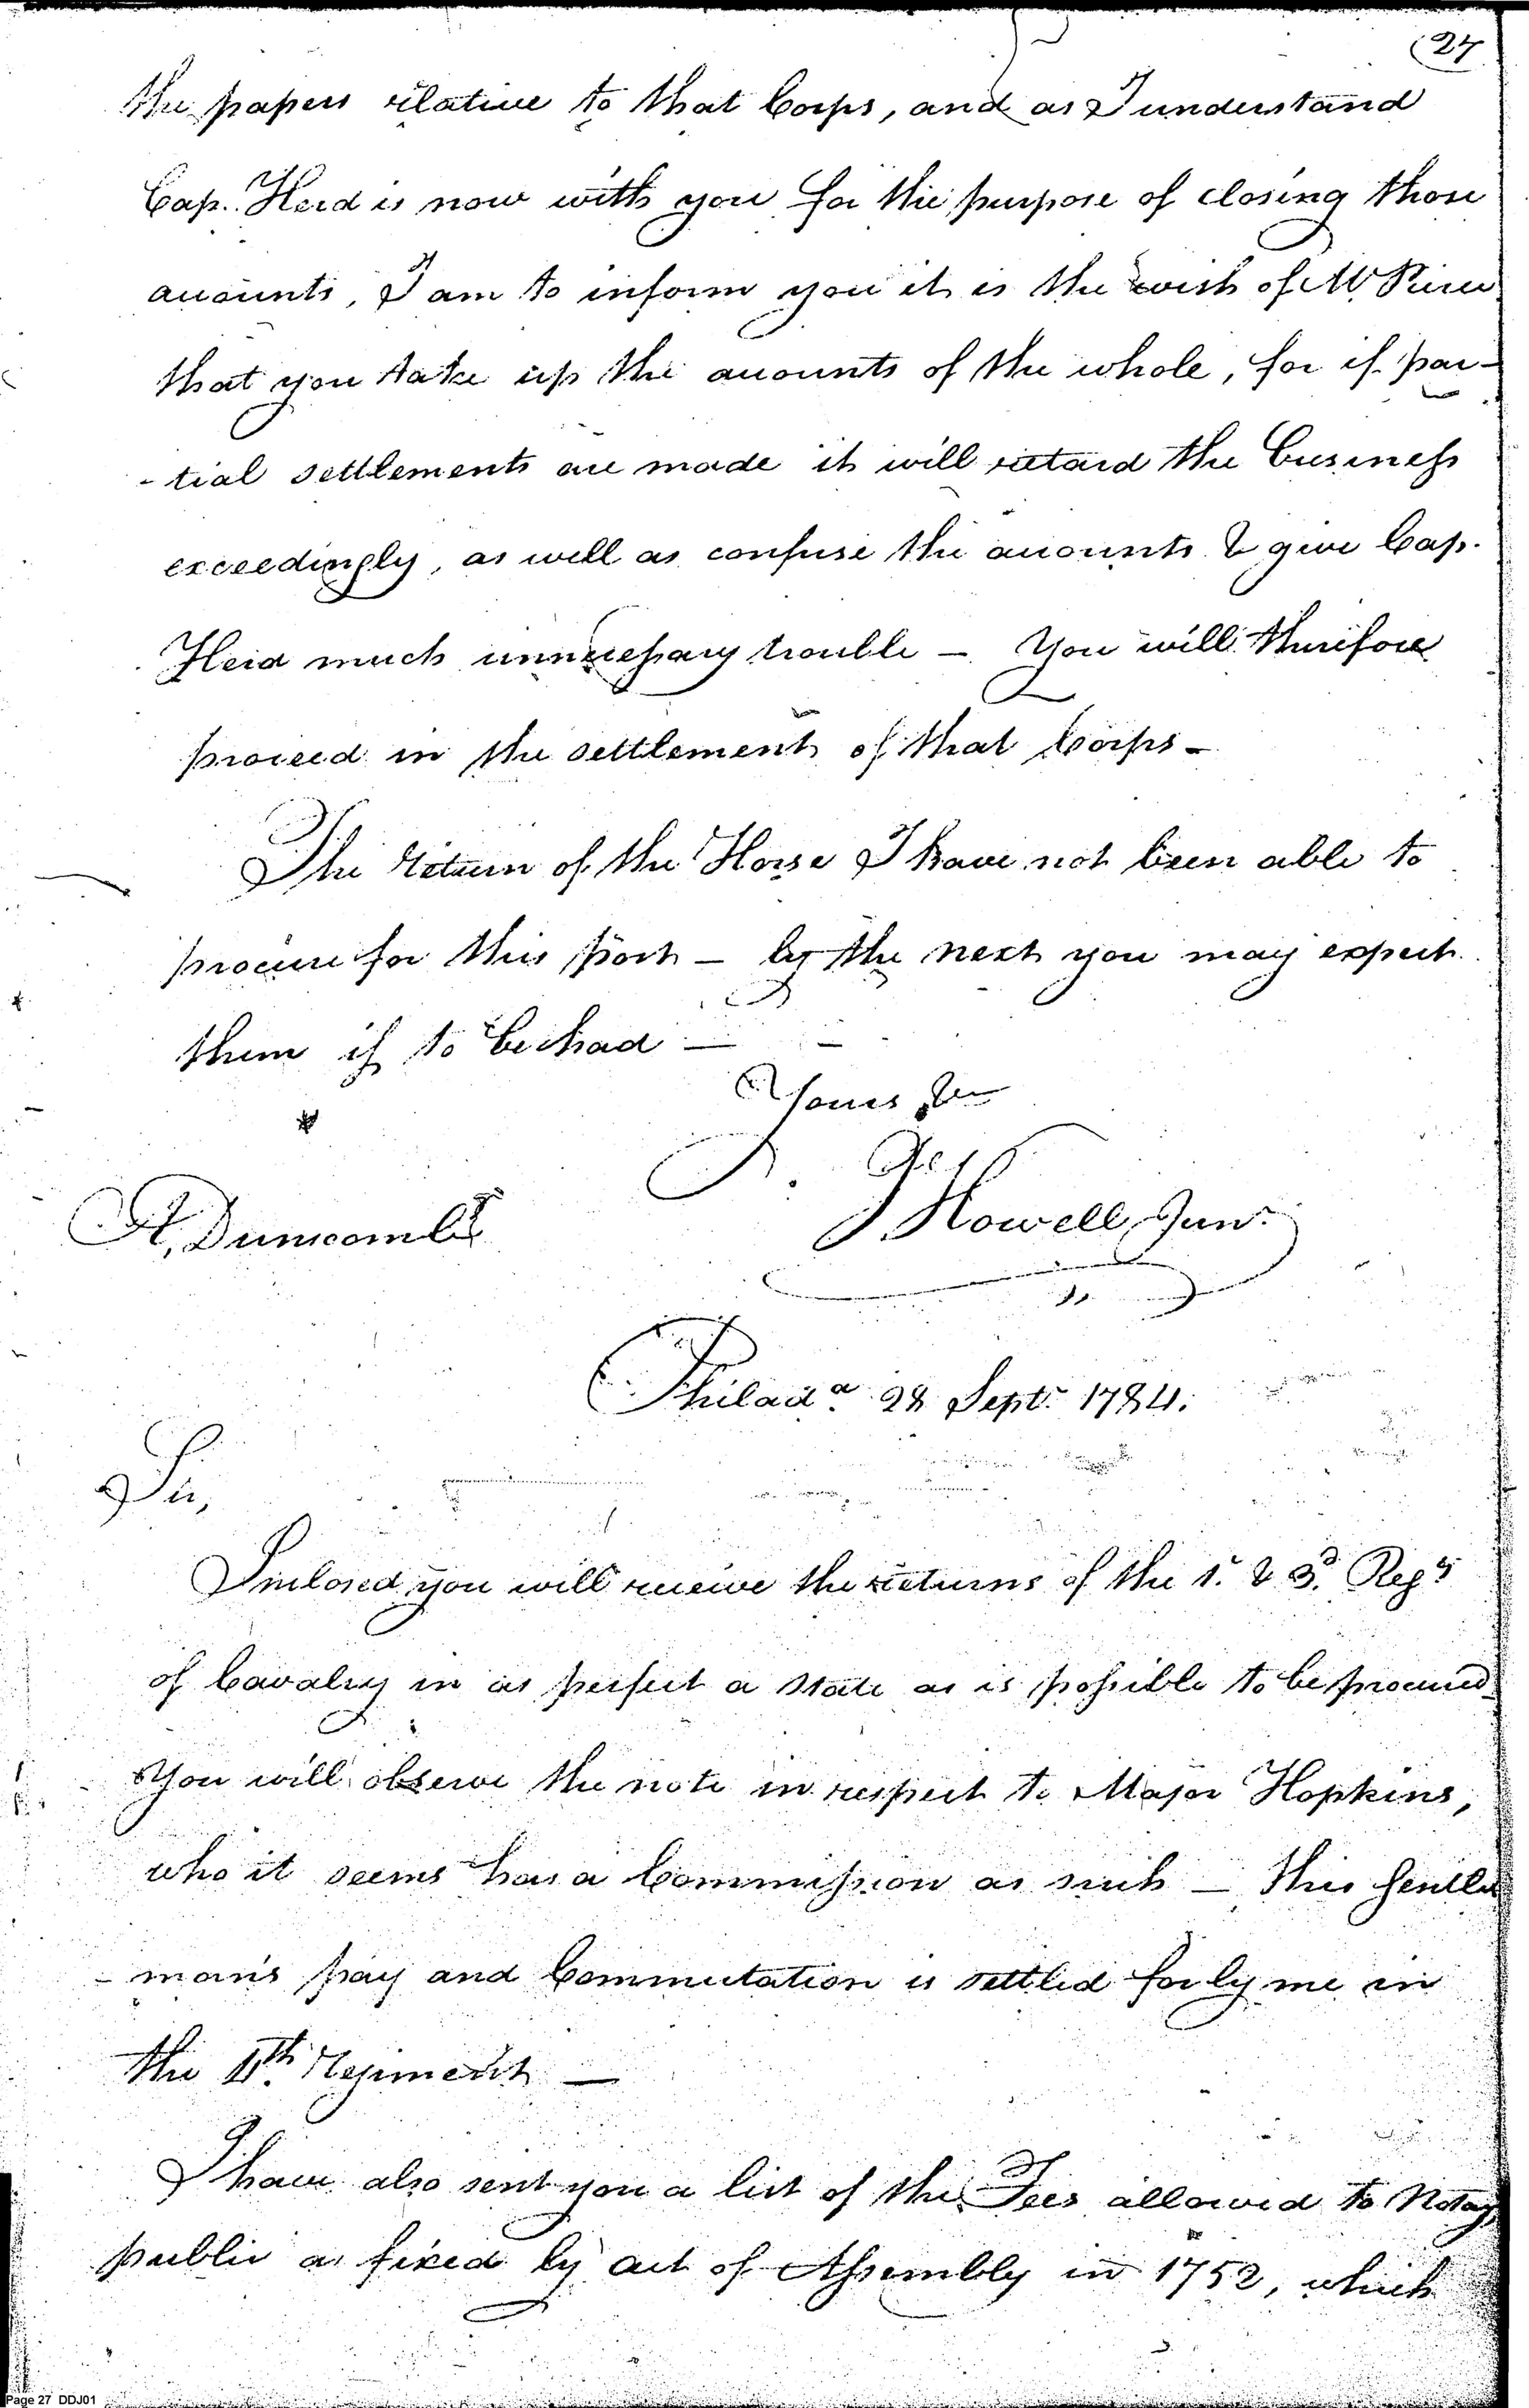 (27
the papers relative to that Corps, and as I understand
Cap. Heid is now with you for the purpose of closing those
accounts, I am to inform you it is the wish of Mr. Pierce
that you take up the accounts of the whole, for if par-
-tial settlements are made it will retard the business
exceedingly, as well as confuse the accounts & give Cap.
Heid much unnecessary trouble — You will therefore
proceed in the settlement of that Corps —
The Return of the Horse I have not been able to
procure for this post — by the next you may expect
them if to be had —
Yours &c
J Howell, Junr.
Philada. 28 Sept. 1784.
Sir,
Inclosed you will receive the returns of the 1. & 3d. Regts
of Cavalry in as perfect a state as is possible to be procured
You will observe the note in respect to Major Hopkins,
who it seems has a Commission as such — this Gentle
- man's pay and Commutation is settled for by me in
the 4th. Regiment —
I have also sent you a list of the Fees allowed to Notary
public as fixed by act of Assembly in 1752, which
Page 27 DDJ01